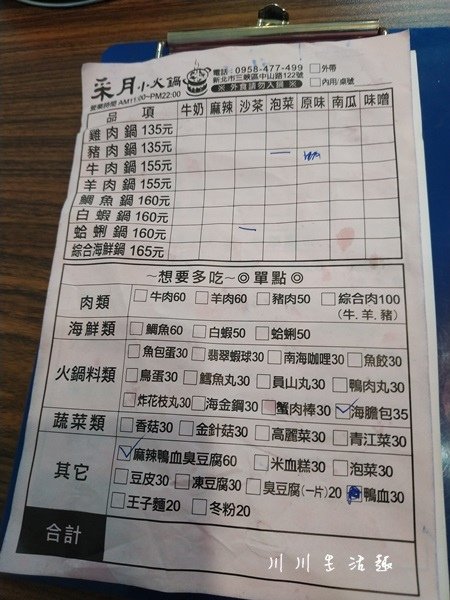 采月小火鍋
電話：0958-477-499
新北市三峽區中山路122號
※外賣請勿入鍋※
□外帶
□內用/桌號
營業時間 AM11:00~PM22:00
品項 牛奶 麻辣 沙茶 泡菜 原味 南瓜 味噌
雞肉鍋 135元
豬肉鍋 135元
牛肉鍋 155元
羊肉鍋 155元
鯛魚鍋 160元
白蝦鍋 160元
蛤蜊鍋 160元
綜合海鮮鍋 165元
~想要多吃~◎單點◎
肉類 □牛肉60 □羊肉60 □豬肉50 □綜合肉100
(牛.羊.豬)
海鮮類 □鯛魚60 □白蝦50 □蛤蜊50
火鍋料類 □魚包蛋30 □翡翠蝦球30 □南海咖哩30 □魚餃30
□鳥蛋30 □鱈魚丸30 □員山丸30 □鴨肉丸30
□炸花枝丸30 □海金鋼30 □蟹肉棒30 ☑海膽包35
蔬菜類 □香菇30 □金針菇30 □高麗菜30 □青江菜30
其它 ☑麻辣鴨血臭豆腐60 □米血糕30 □泡菜30
□豆皮30 □凍豆腐30 □臭豆腐(一片)20 □鴨血30
□王子麵20 □冬粉20
合計
川川生活趣